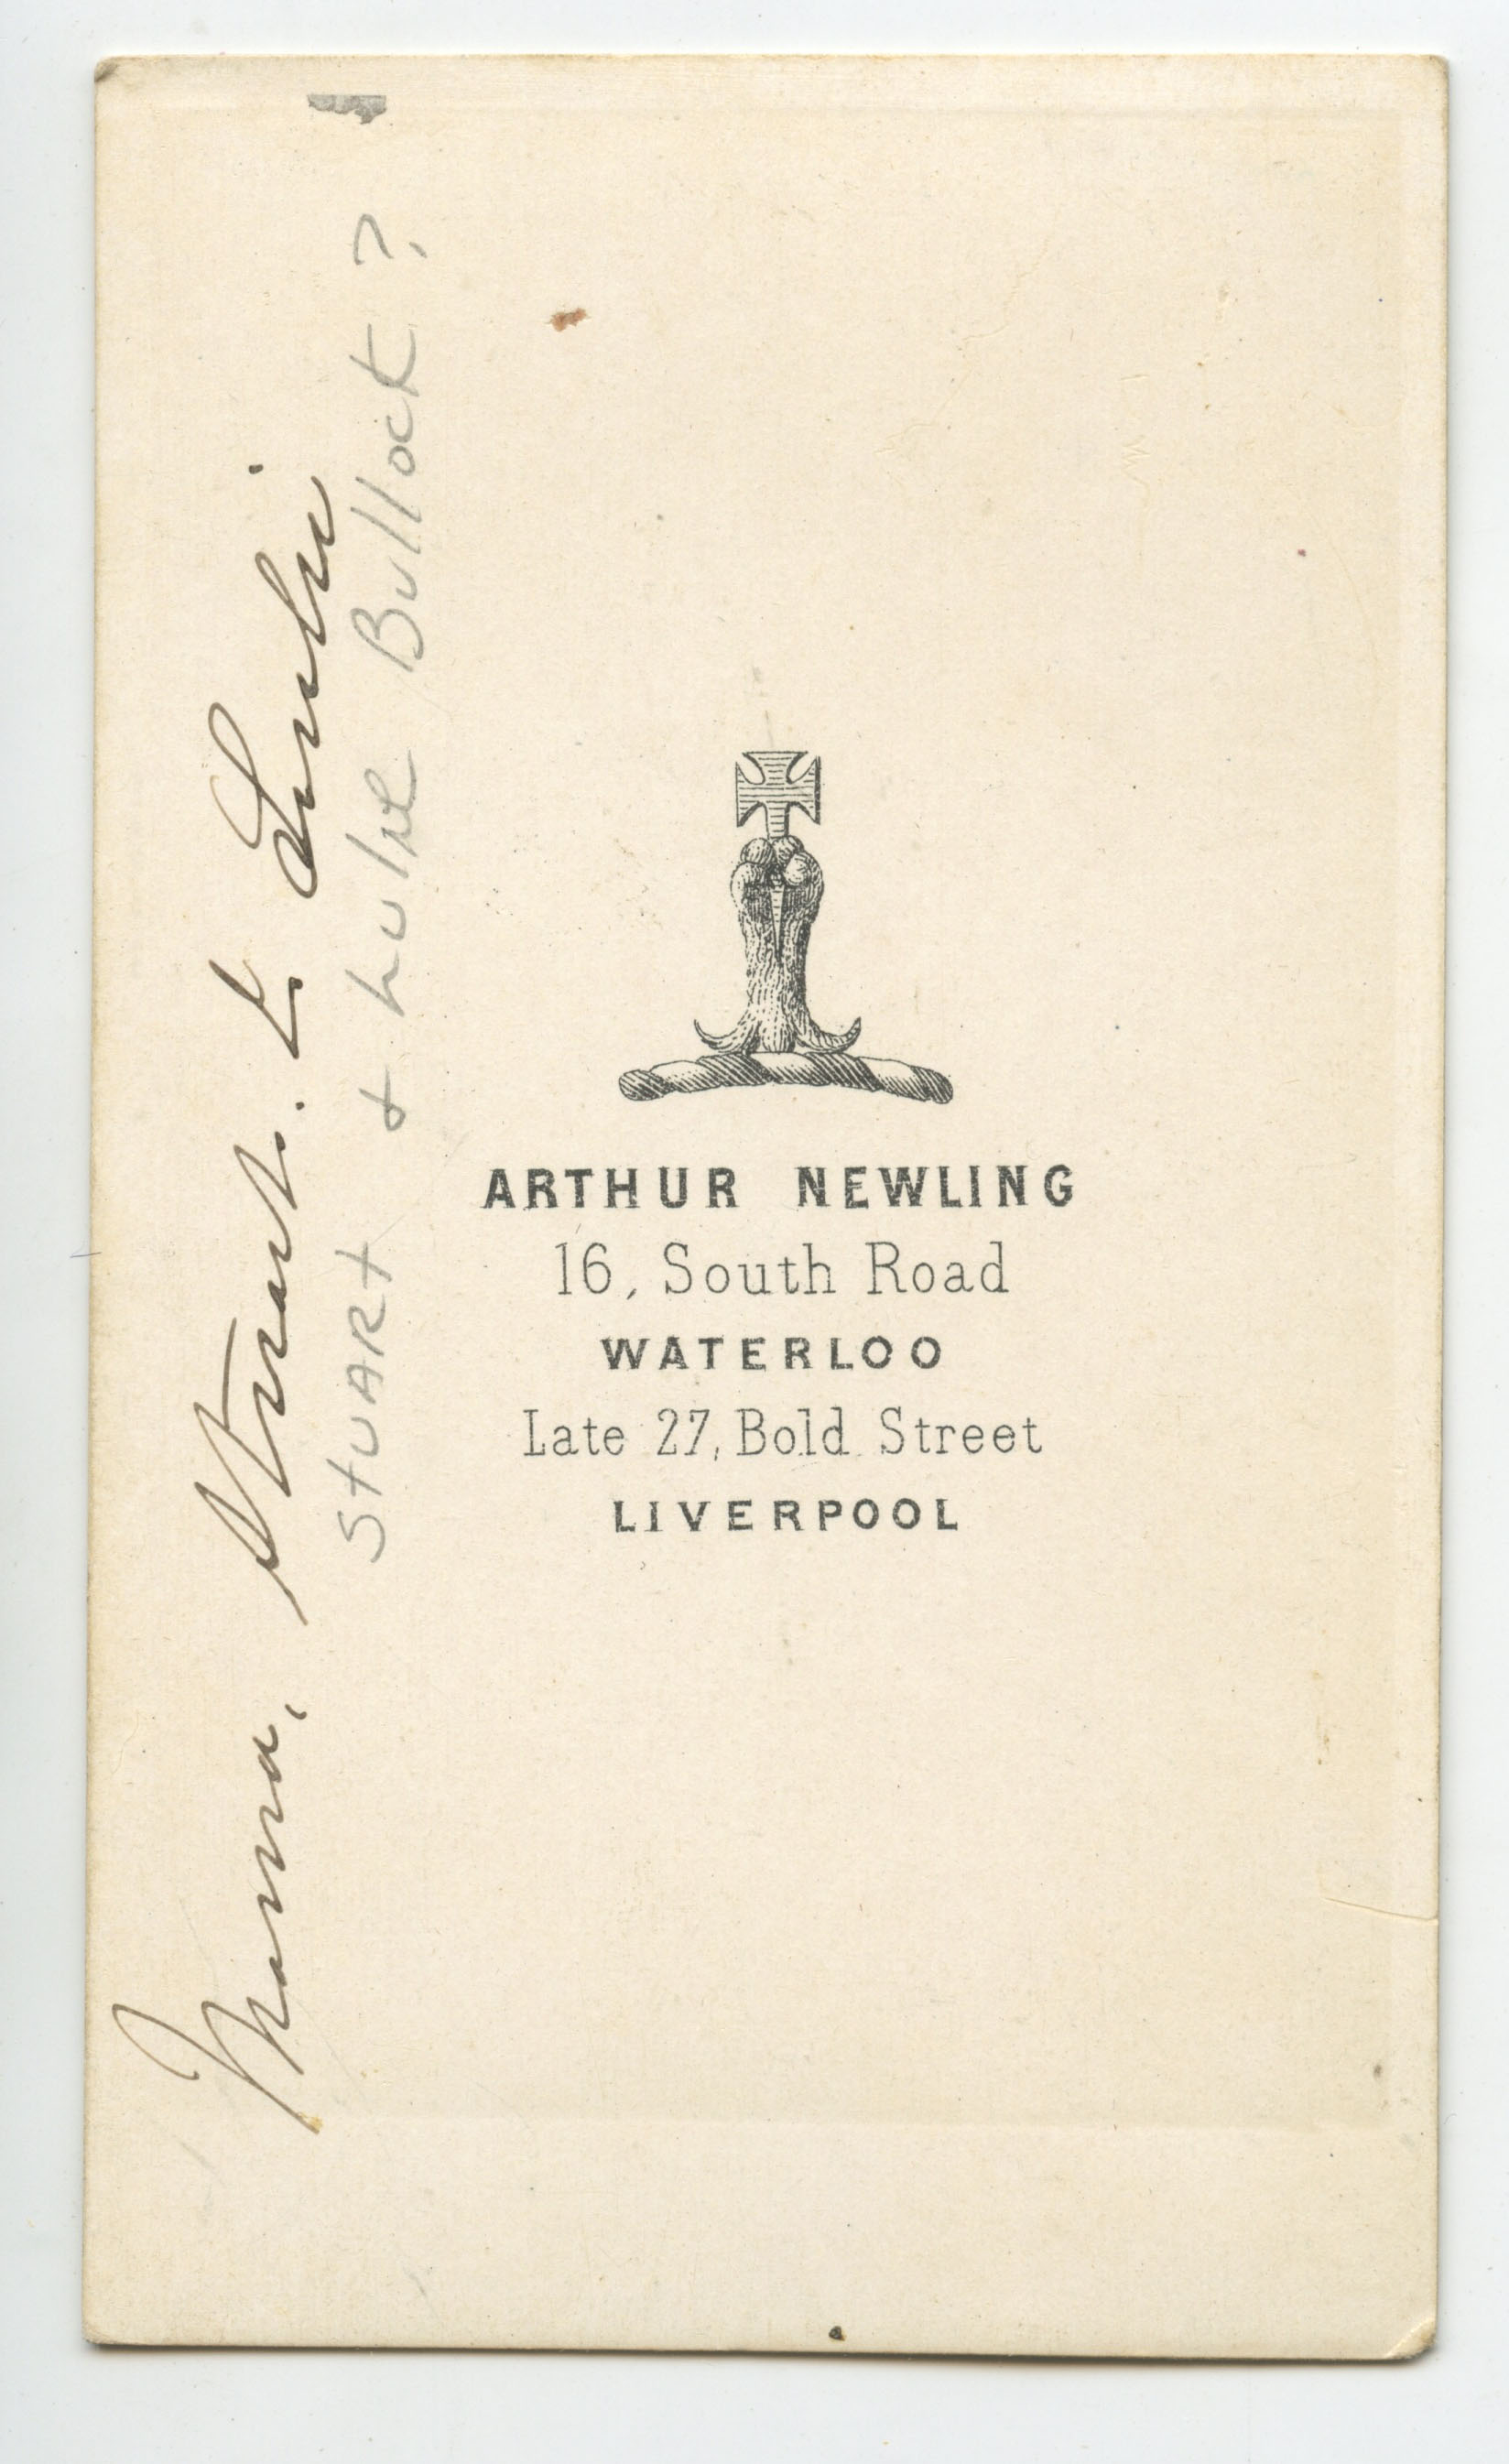 Mama, Stuart. & Lulie
StUARt & Lulie Bullock ?
ARTHUR NEWLING
16, South Road
WATERLOO
Late 27, Bold Street
LIVERPOOL